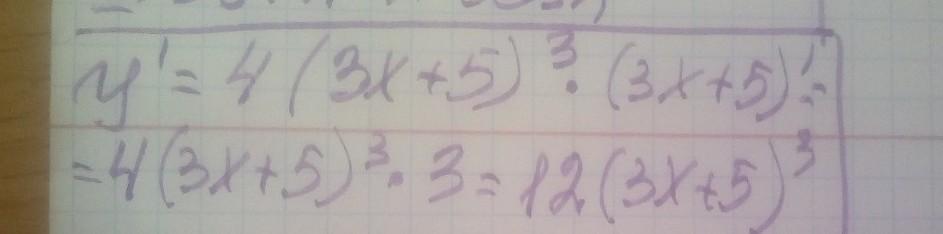 y' = 4 (3x+5)³ · (3x+5)' =
= 4 (3x+5)³ · 3 = 12 (3x+5)³